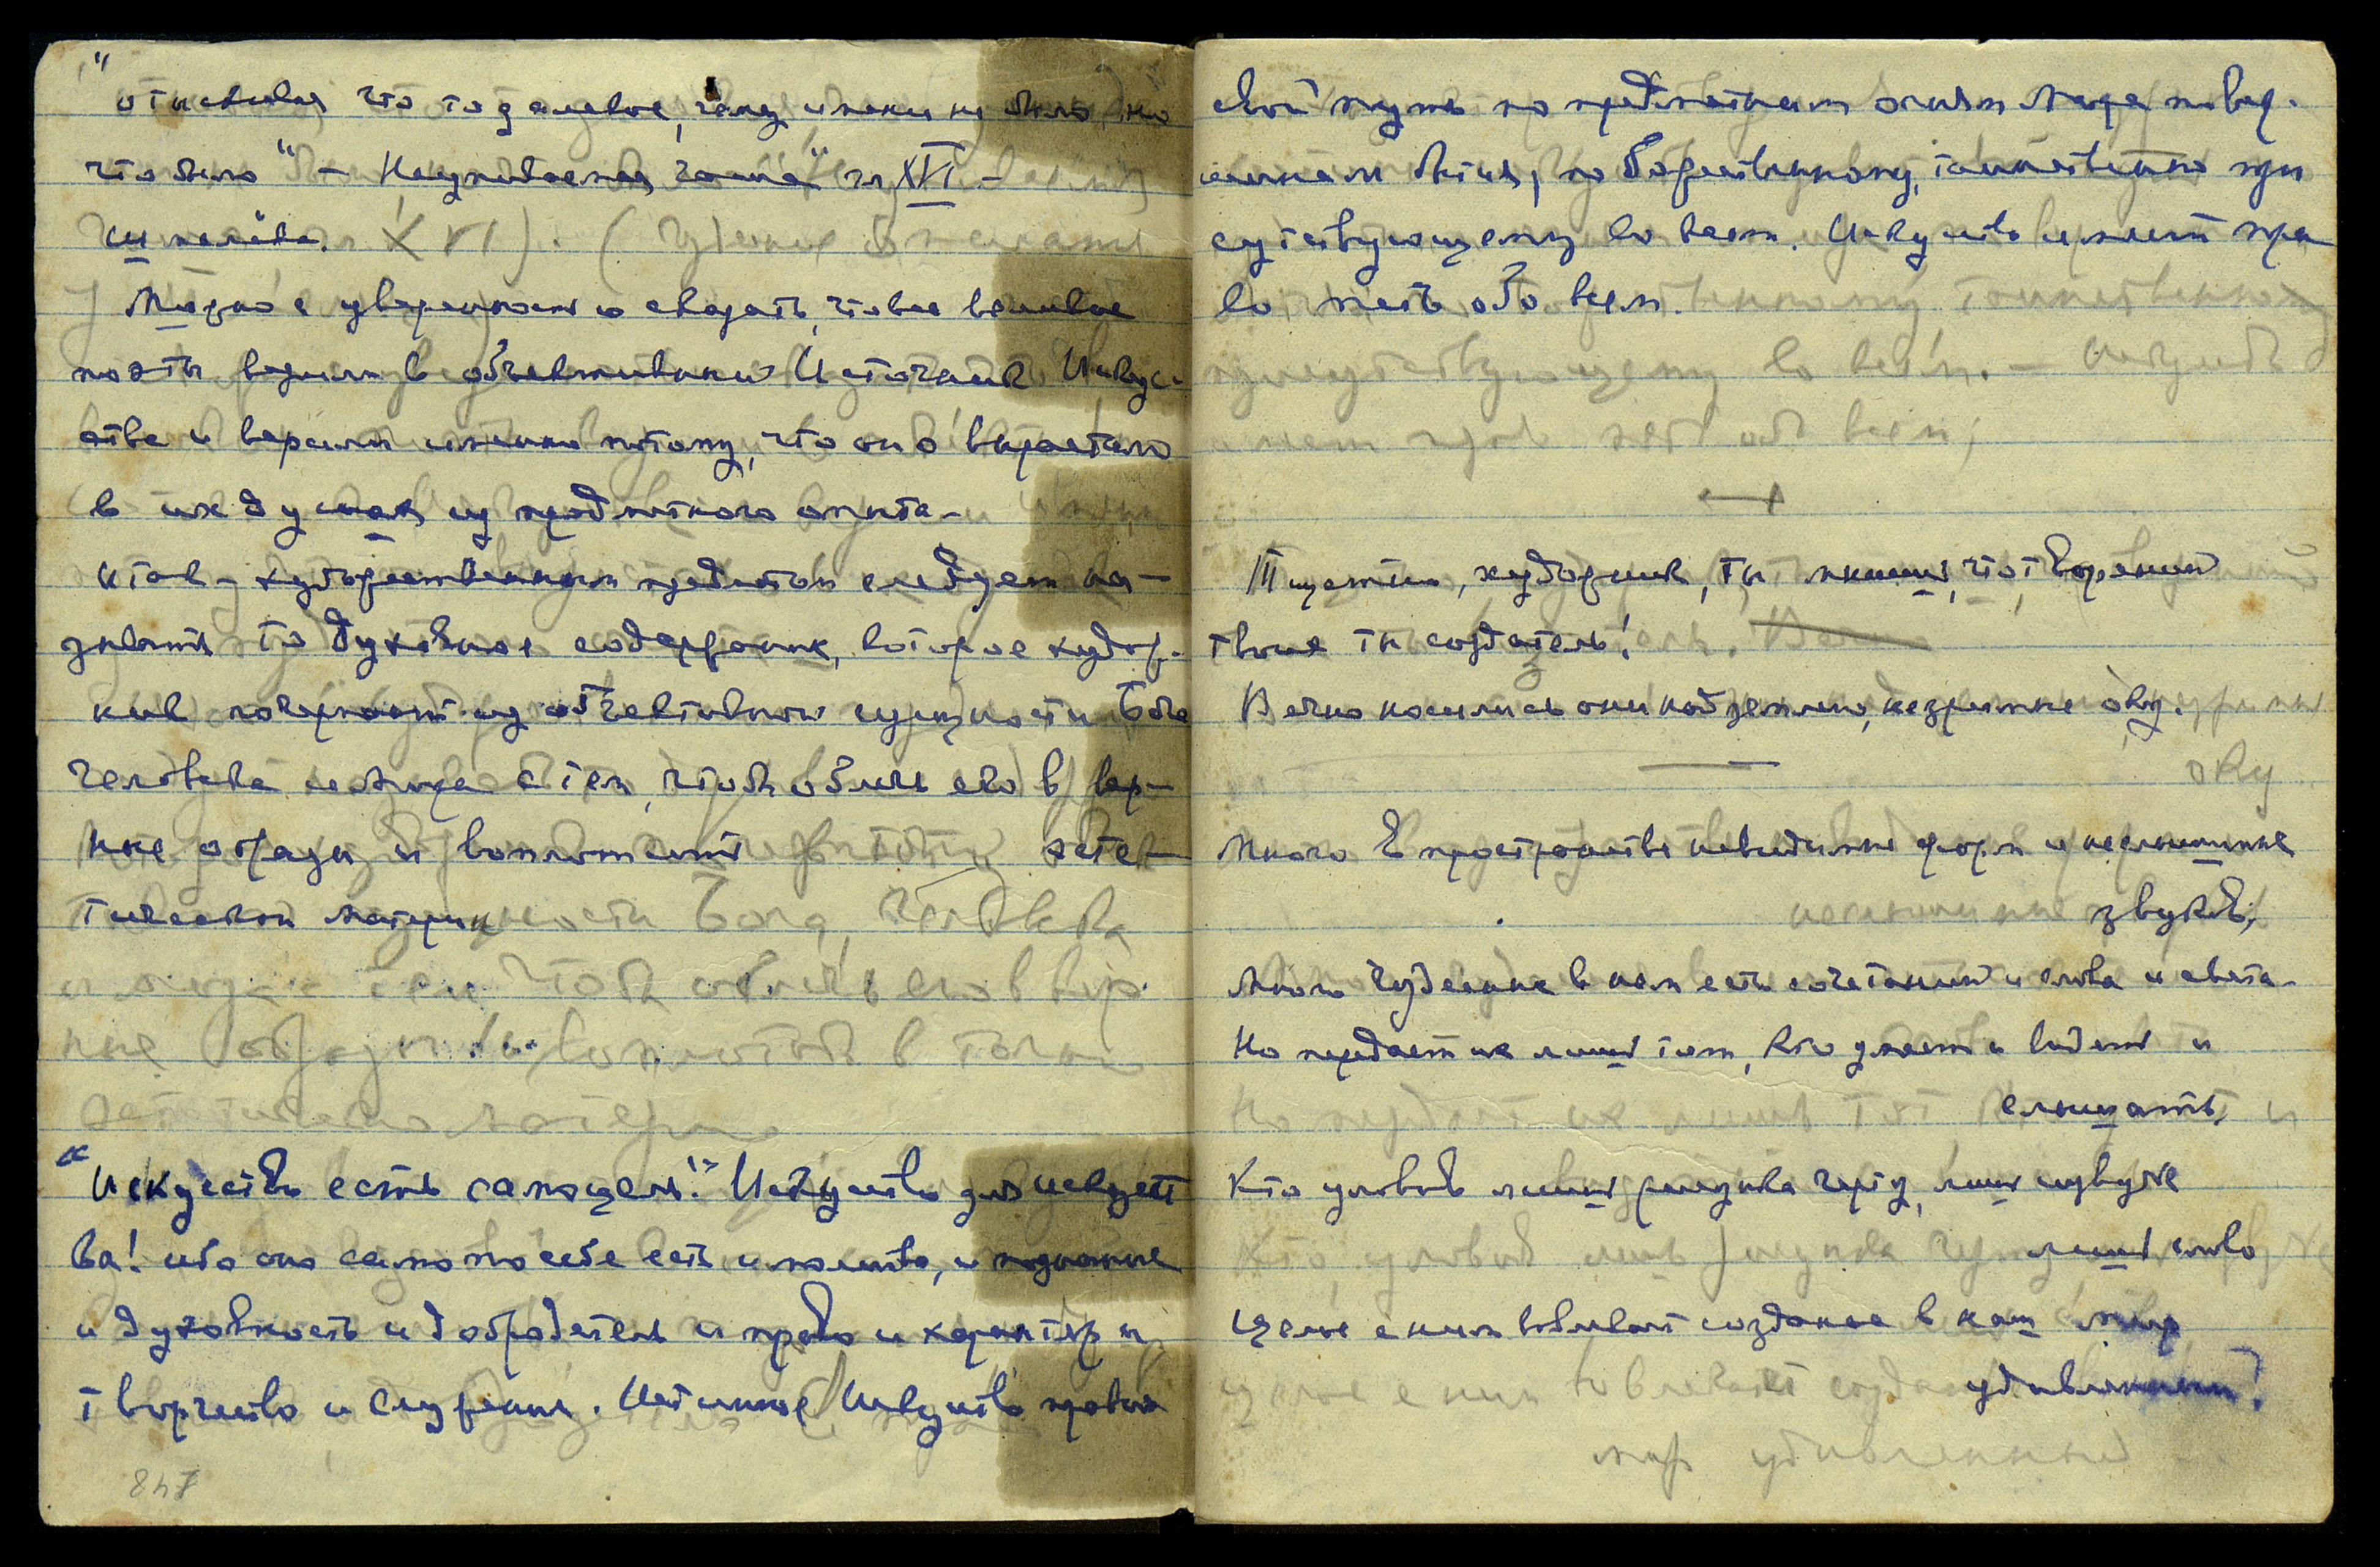 "отыскивая что то далекое, чему имени не было, но
что было" – Неупиваемая чаша" гл XVI –
Шмелёва.
Можно с уверенностью сказать, что все великие
поэты верили в объективный Источник Искус-
ства и верили именно потому, что оно вырастало
в их душах из предметного опыта –
Итак – художественным предметом следует на-
зывать то духовное содержание, которое худож-
ник почерпает из объективной сущности Бога
человека и мира с тем, чтобы облечь его в вер-
ные образы и воплотить эсте-
тической материи
"Искусство есть самоцель". Искусство для искусст
ва! ибо оно само по себе есть и молитва, и познание
и духовность и добродетель и право и характер и
творчество и служение. Истинное Искусство провод
847
свой путь по предметным огням мира по вер-
шинам бытия, по Божественному, таинственно при
сутствующему во всем. Искусство имеет пра
во петь обо всем.
Тщетно, художник, ты мнишь, что творений
твоих ты создатель!
Вечно носились они над землею, незримые оку.
Много в пространстве невидимых форм и неслышимых
звуков,
Много чудесных в нем есть сочетаний и слова и света.
Но передаст их лишь тот, кто умеет и видеть и
слышать,
Кто уловив лишь рисунка черту, лишь созвучье
лишь слово
Целое с ним вовлекает созданье в наш мир
удивленный!